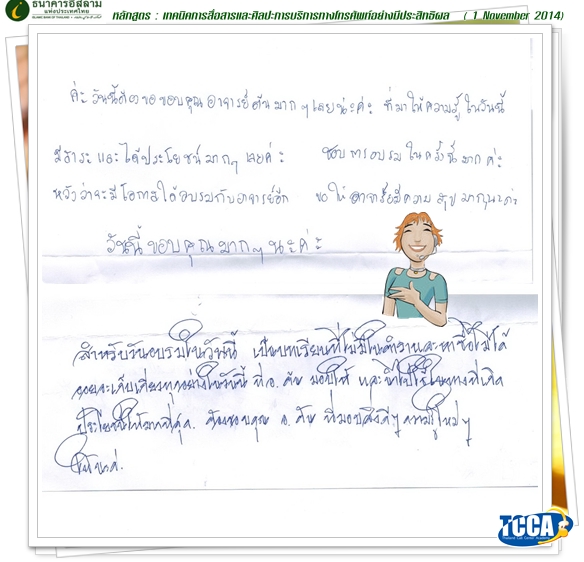 ธนาคารอิสลาม
แห่งประเทศไทย
ISLAMIC BANK OF THAILAND
หลักสูตร : เทคนิคการสื่อสารและศิลปะการบริการทางโทรศัพท์อย่างมีประสิทธิผล ( 1 November 2014)
ค่ะ วันนี้ ขอขอบคุณ อาจารย์ต้น มาก ๆ เลยน่ะค่ะ ที่มาให้ความรู้ ในวันนี้
มีสาระ และ ได้ประโยชน์ มากๆ เลยค่ะ ชอบการอบรม ในครั้งนี้ มาก ค่ะ
หวังว่าจะมีโอกาสได้อบรมกับอาจารย์อีก ขอให้ อาจารย์มีความสุข มากๆนะค่ะ
วันนี้ ขอบคุณมากๆ นะค่ะ
สำหรับวันอบรมในวันนี้ เป็นบทเรียนที่ไม่มีในตำราและหาซื้อไม่ได้
จะเก็บเกี่ยวทุกอย่างในวันนี้ ที่ อ. มอบให้ และนำไปใช้ในทางที่เกิด
ประโยชน์ให้มากที่สุด. ขอบคุณ อ. ที่มอบสิ่งดีๆ ความรู้ใหม่ๆ
TCCA